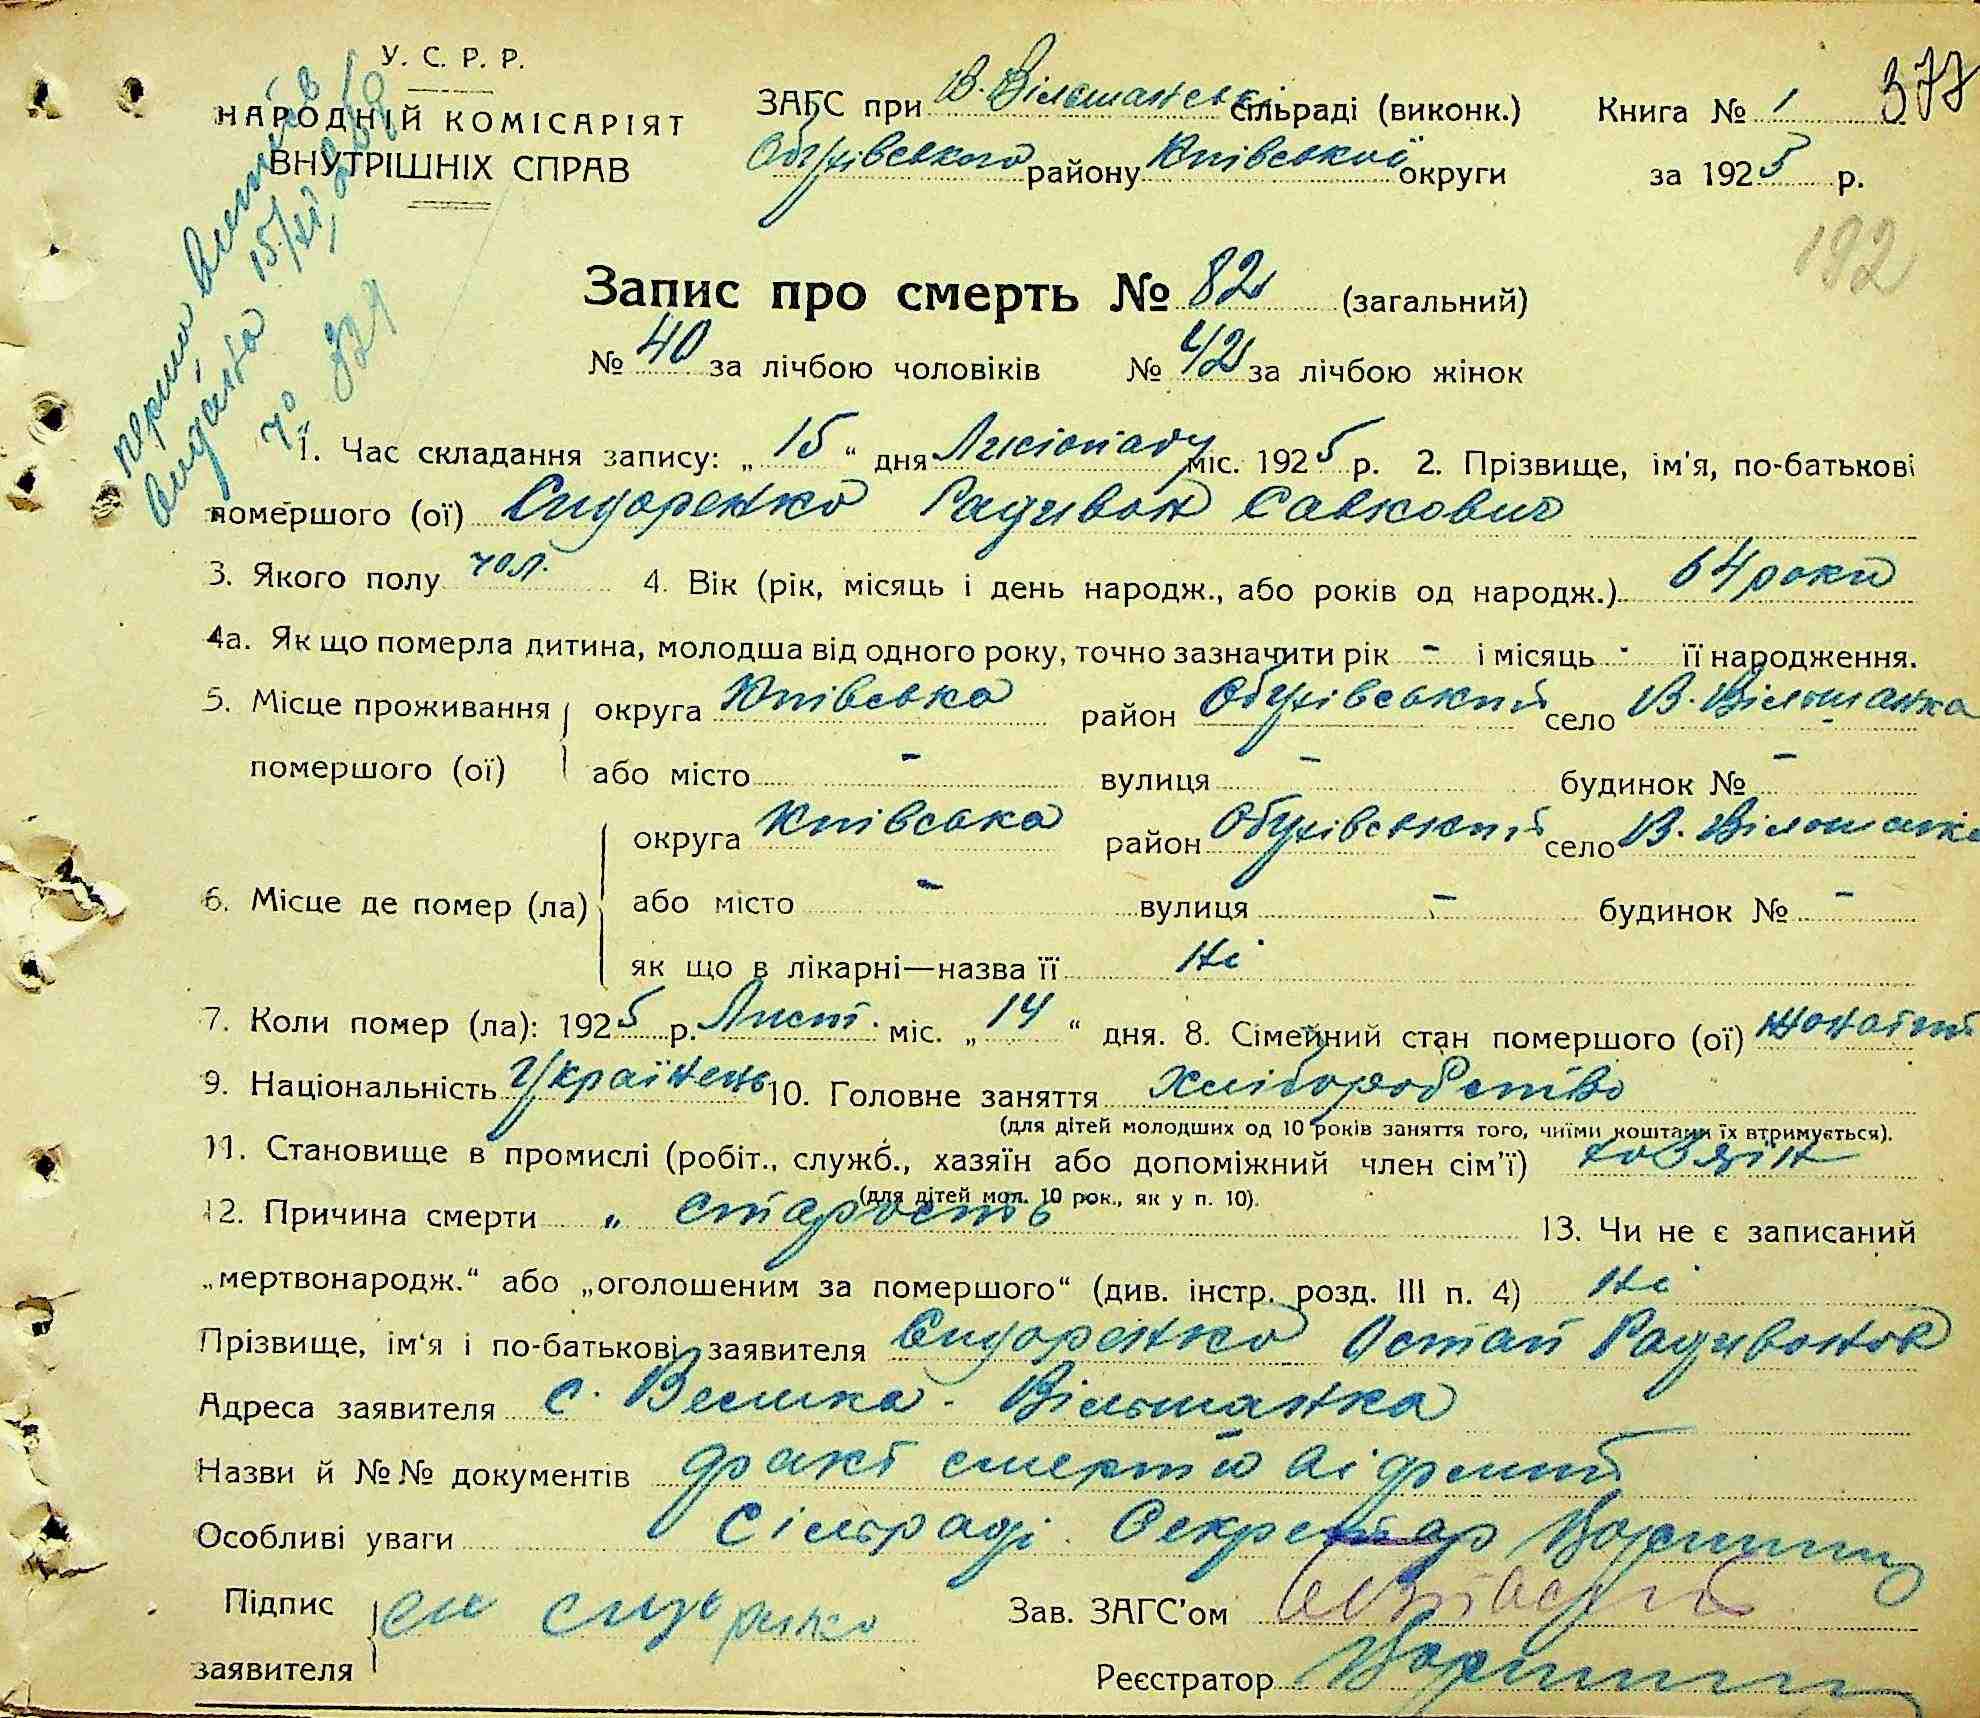 У. С. Р. Р.
НАРОДНІЙ КОМІСАРІЯТ
ВНУТРІШНІХ СПРАВ
ЗАГС при В. Вільшанські сільраді (виконк.)
Обухівського району Київської округи
Книга № 1
за 1925 р.
377
192
перший витяг
видано 15/XI
Запис про смерть № 82 (загальний)
№ 40 за лічбою чоловіків № 42 за лічбою жінок
1. Час складання запису: „ 15 “ дня Листопаду міс. 1925 р. 2. Прізвище, ім'я, по-батькові
помершого (ої) Сидоренко Радивон Савкович
3. Якого полу чол. 4. Вік (рік, місяць і день народж., або років од народж.) 64 роки
4а. Як що померла дитина, молодша від одного року, точно зазначити рік - і місяць - її народження.
5. Місце проживання округа Київська район Обухівський село В. Вільшанка
помершого (ої) або місто - вулиця - будинок № -
округа Київська район Обухівський село В. Вільшанка
6. Місце де помер (ла) або місто - вулиця - будинок № -
як що в лікарні—назва її Ні
7. Коли помер (ла): 1925 р. Лист. міс. „ 14 “ дня. 8. Сімейний стан помершого (ої) жонатий
9. Національність Українець 10. Головне заняття хліборобство
(для дітей молодших од 10 років заняття того, чиїми коштами їх втримується).
11. Становище в промислі (робіт., служб., хазяїн або допоміжний член сім'ї) хозяїн
(для дітей мол. 10 рок., як у п. 10).
12. Причина смерти „ старость 13. Чи не є записаний
„мертвонародж.“ або „оголошеним за помершого“ (див. інстр. розд. III п. 4) Ні
Прізвище, ім'я і по-батькові заявителя Сидоренко Остап Радивонов
Адреса заявителя с. Велика - Вільшанка
Назви й №№ документів факт смерти відомий
Особливі уваги Сільраді. Секретар
Підпис
заявителя Сидоренко
Зав. ЗАГС'ом
Реєстратор